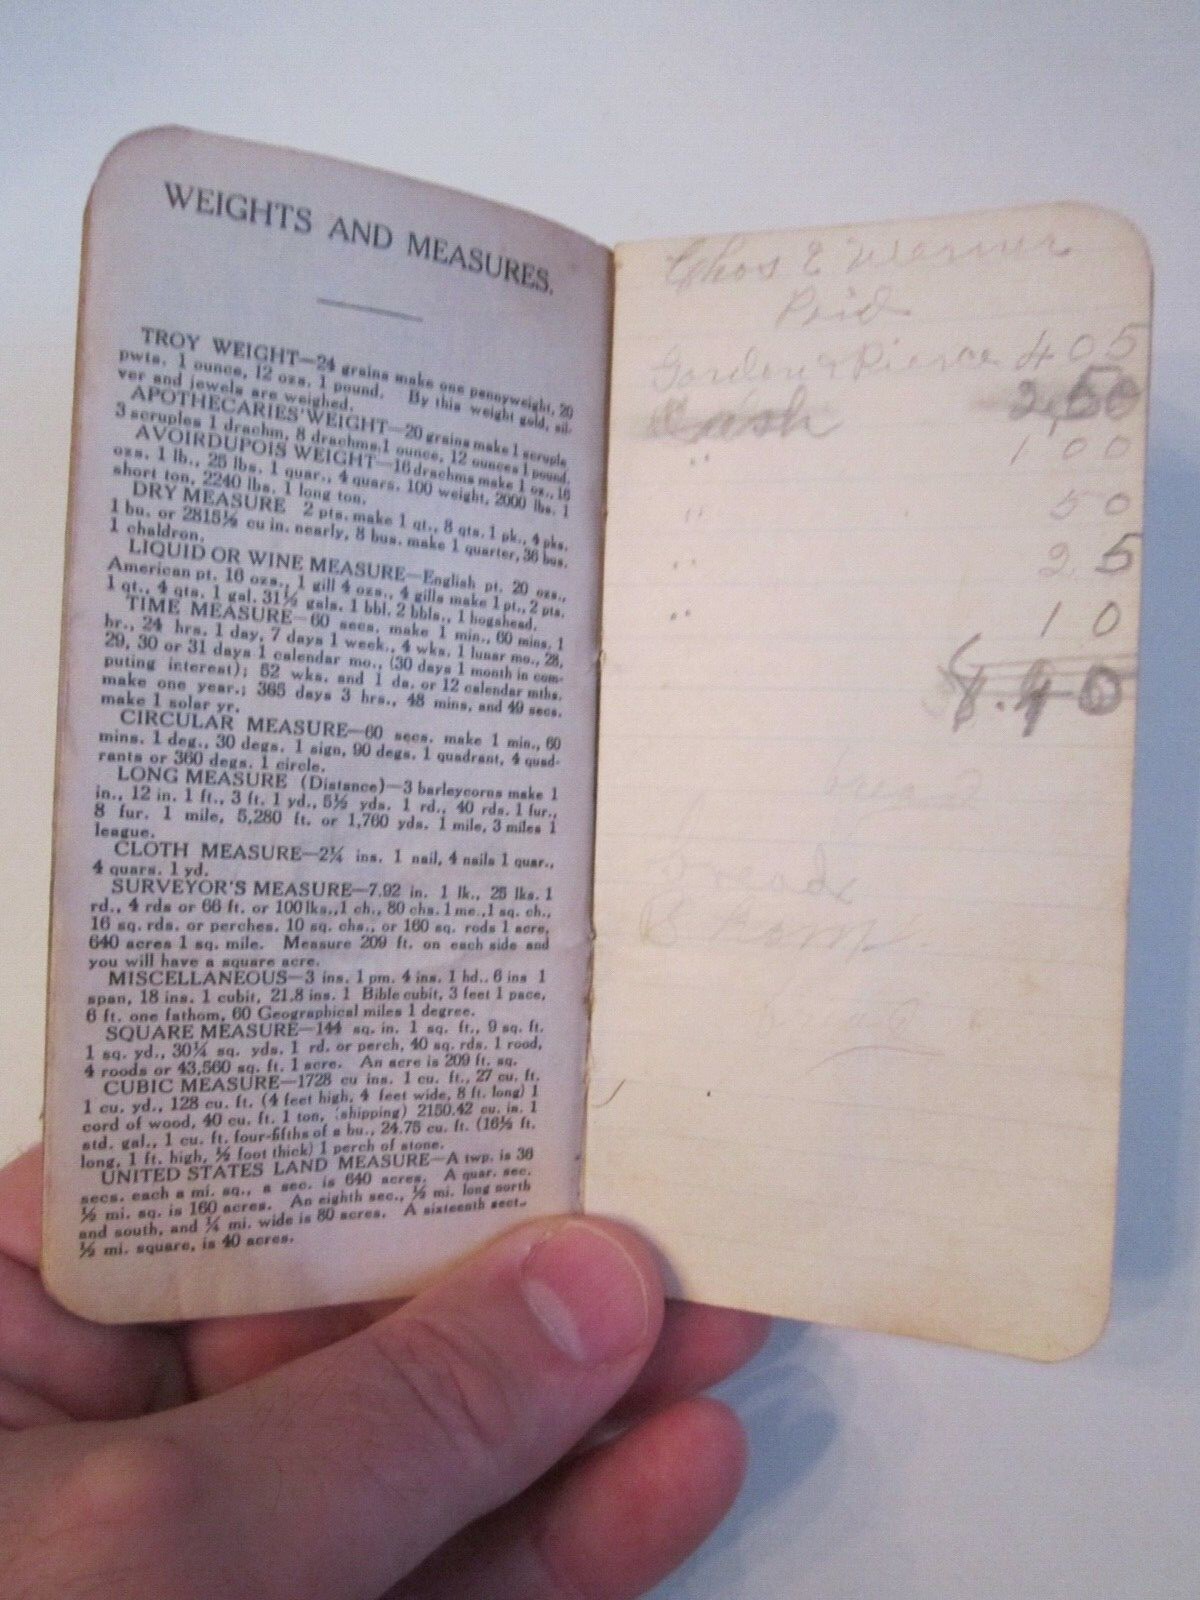 WEIGHTS AND MEASURES.
TROY WEIGHT—24 grains make one pennyweight, 20
pwts. 1 ounce, 12 ozs. 1 pound. By this weight gold, sil-
ver and jewels are weighed.
APOTHECARIES' WEIGHT—20 grains make 1 scruple
3 scruples 1 drachm, 8 drachms, 1 ounce, 12 ounces 1 pound.
AVOIRDUPOIS WEIGHT—16 drachms make 1 oz., 16
ozs. 1 lb., 25 lbs. 1 quar., 4 quars. 100 weight, 2000 lbs. 1
short ton, 2240 lbs. 1 long ton.
DRY MEASURE 2 pts. make 1 qt., 8 qts. 1 pk., 4 pks.
1 bu. or 2815½ cu in. nearly, 8 bus. make 1 quarter, 36 bus.
1 chaldron.
LIQUID OR WINE MEASURE—English pt. 20 ozs.,
American pt. 16 ozs., 1 gill 4 ozs., 4 gills make 1 pt., 2 pts.
1 qt., 4 qts. 1 gal. 31½ gals. 1 bbl. 2 bbls., 1 hogshead.
TIME MEASURE—60 secs. make 1 min., 60 mins. 1
hr., 24 hrs. 1 day, 7 days 1 week., 4 wks. 1 lunar mo., 28,
29, 30 or 31 days 1 calendar mo., (30 days 1 month in com-
puting interest); 52 wks. and 1 da. or 12 calendar mths.
make one year.; 365 days 3 hrs., 48 mins, and 49 secs.
make 1 solar yr.
CIRCULAR MEASURE—60 secs. make 1 min., 60
mins. 1 deg., 30 degs. 1 sign, 90 degs. 1 quadrant, 4 quad-
rants or 360 degs. 1 circle.
LONG MEASURE (Distance)—3 barleycorns make 1
in., 12 in. 1 ft., 3 ft. 1 yd., 5½ yds. 1 rd., 40 rds. 1 fur.,
8 fur. 1 mile, 5,280 ft. or 1,760 yds. 1 mile, 3 miles 1
league.
CLOTH MEASURE—2¼ ins. 1 nail, 4 nails 1 quar.,
4 quars. 1 yd.
SURVEYOR'S MEASURE—7.92 in. 1 lk., 25 lks. 1
rd., 4 rds or 66 ft. or 100 lks., 1 ch., 80 chs. 1 me., 1 sq. ch.,
16 sq. rds. or perches, 10 sq. chs., or 160 sq. rods 1 acre,
640 acres 1 sq. mile. Measure 209 ft. on each side and
you will have a square acre.
MISCELLANEOUS—3 ins. 1 pm. 4 ins. 1 hd., 6 ins 1
span, 18 ins. 1 cubit, 21.8 ins. 1 Bible cubit, 3 feet 1 pace,
6 ft. one fathom, 60 Geographical miles 1 degree.
SQUARE MEASURE—144 sq. in. 1 sq. ft., 9 sq. ft.
1 sq. yd., 30¼ sq. yds. 1 rd. or perch, 40 sq. rds. 1 rood,
4 roods or 43,560 sq. ft. 1 acre. An acre is 209 ft. sq.
CUBIC MEASURE—1728 cu ins. 1 cu. ft., 27 cu. ft.
1 cu. yd., 128 cu. ft. (4 feet high, 4 feet wide, 8 ft. long) 1
cord of wood, 40 cu. ft. 1 ton, (shipping) 2150.42 cu. in. 1
std. gal., 1 cu. ft. four-fifths of a bu., 24.75 cu. ft. (16½ ft.
long, 1 ft. high, ½ foot thick) 1 perch of stone.
UNITED STATES LAND MEASURE—A twp. is 36
secs. each a mi. sq., a sec. is 640 acres. A quar. sec.
½ mi. sq. is 160 acres. An eighth sec., ½ mi. long north
and south, and ¼ mi. wide is 80 acres. A sixteenth sect.,
½ mi. square, is 40 acres.
Chas E Werner
Paid
Gorden & Pierce 405
Cash 2,50
" 100
" 50
" 25
" 10
8.40